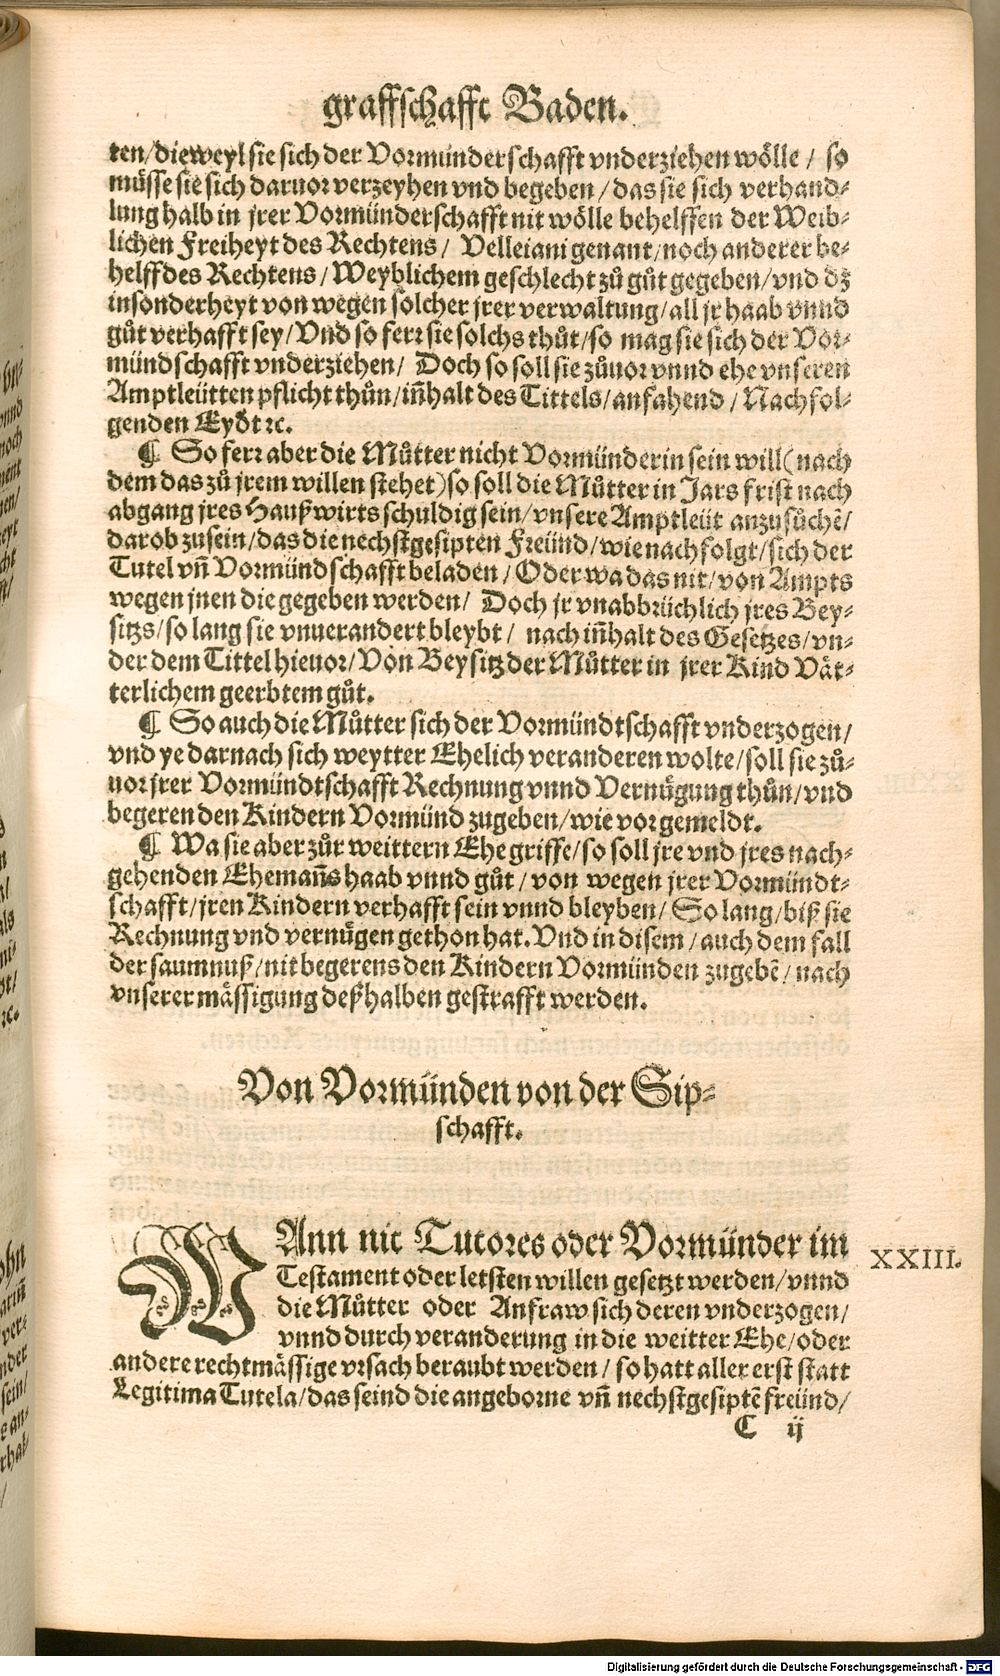 graffschafft Baden.
ten/dieweyl sie sich der Vormünderschafft vnderziehen wölle / so
müsse sie sich daruor verzeyhen vnd begeben / das sie sich verhand-
lung halb in jrer Vormünderschafft nit wölle behelffen der Weib-
lichen Freiheyt des Rechtens / Velleiani genant/noch anderer be-
helff des Rechtens / Weyblichem geschlecht zů gůt gegeben/vnd dz
insonderheyt von wegen solcher jrer verwaltung/all jr haab vnnd
gůt verhafft sey/Vnd so ferr sie solchs thůt/so mag sie sich der Vor-
mündschafft vnderziehen/ Doch so soll sie zůuor vnnd ehe vnseren
Amptleütten pflicht thůn/iñhalt des Tittels/anfahend / Nachfol-
genden Eydt ꝛc.
¶ So ferr aber die Můtter nicht Vormünderin sein will(nach
dem das zů jrem willen stehet)so soll die Můtter in Jars frist nach
abgang jres Haußwirts schuldig sein/vnsere Amptleüt anzusůchẽ/
darob zusein/das die nechstgesipten Freünd/wie nachfolgt/sich der
Tutel vñ Vormündschafft beladen / Oder wa das nit/von Ampts
wegen jnen die gegeben werden/ Doch jr vnabbrüchlich jres Bey-
sitzs/so lang sie vnuerandert bleybt / nach iñhalt des Gesetzes/vn-
der dem Tittel hieuor/Von Beysitz der Můtter in jrer Kind Vät-
terlichem geerbtem gůt.
¶ So auch die Můtter sich der Vormündtschafft vnderzogen/
vnd ye darnach sich weytter Ehelich veranderen wolte/soll sie zů-
uor jrer Vormündtschafft Rechnung vnnd Vernügung thůn/vnd
begeren den Kindern Vormünd zugeben/wie vor gemeldt.
¶ Wa sie aber zůr weittern Ehe griffe/so soll jre vnd jres nach-
gehenden Ehemañs haab vnnd gůt / von wegen jrer Vormündt-
schafft/jren Kindern verhafft sein vnnd bleyben/ So lang/biß sie
Rechnung vnd vernügen gethon hat. Vnd in disem / auch dem fall
der saumnuß/nit begerens den Kindern Vormünden zugebẽ/ nach
vnserer mässigung deßhalben gestrafft werden.
Von Vormünden von der Sip-
schafft.
WAnn nit Tutores oder Vormünder im
XXIII.
Testament oder letsten willen gesetzt werden/vnnd
die Můtter oder Anfraw sich deren vnderzogen/
vnnd durch veranderung in die weitter Ehe/oder
andere rechtmässige vrsach beraubt werden / so hatt aller erst statt
Legitima Tutela/das seind die angeborne vñ nechstgesiptẽ freünd/
C ij
Digitalisierung gefördert durch die Deutsche Forschungsgemeinschaft - DFG